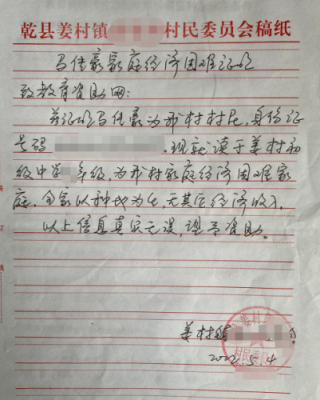 乾县姜村镇 村民委员会稿纸
马佳豪家庭经济困难证明
致教育资助网:
兹证明马佳豪为我村村民,身份证
号码 ,现就读于姜村初
级中学 年级,为我村家庭经济困难家
庭,全家以种地为生,无其它经济收入。
以上信息真实无误,请予资助。
姜村镇
2022.5.4